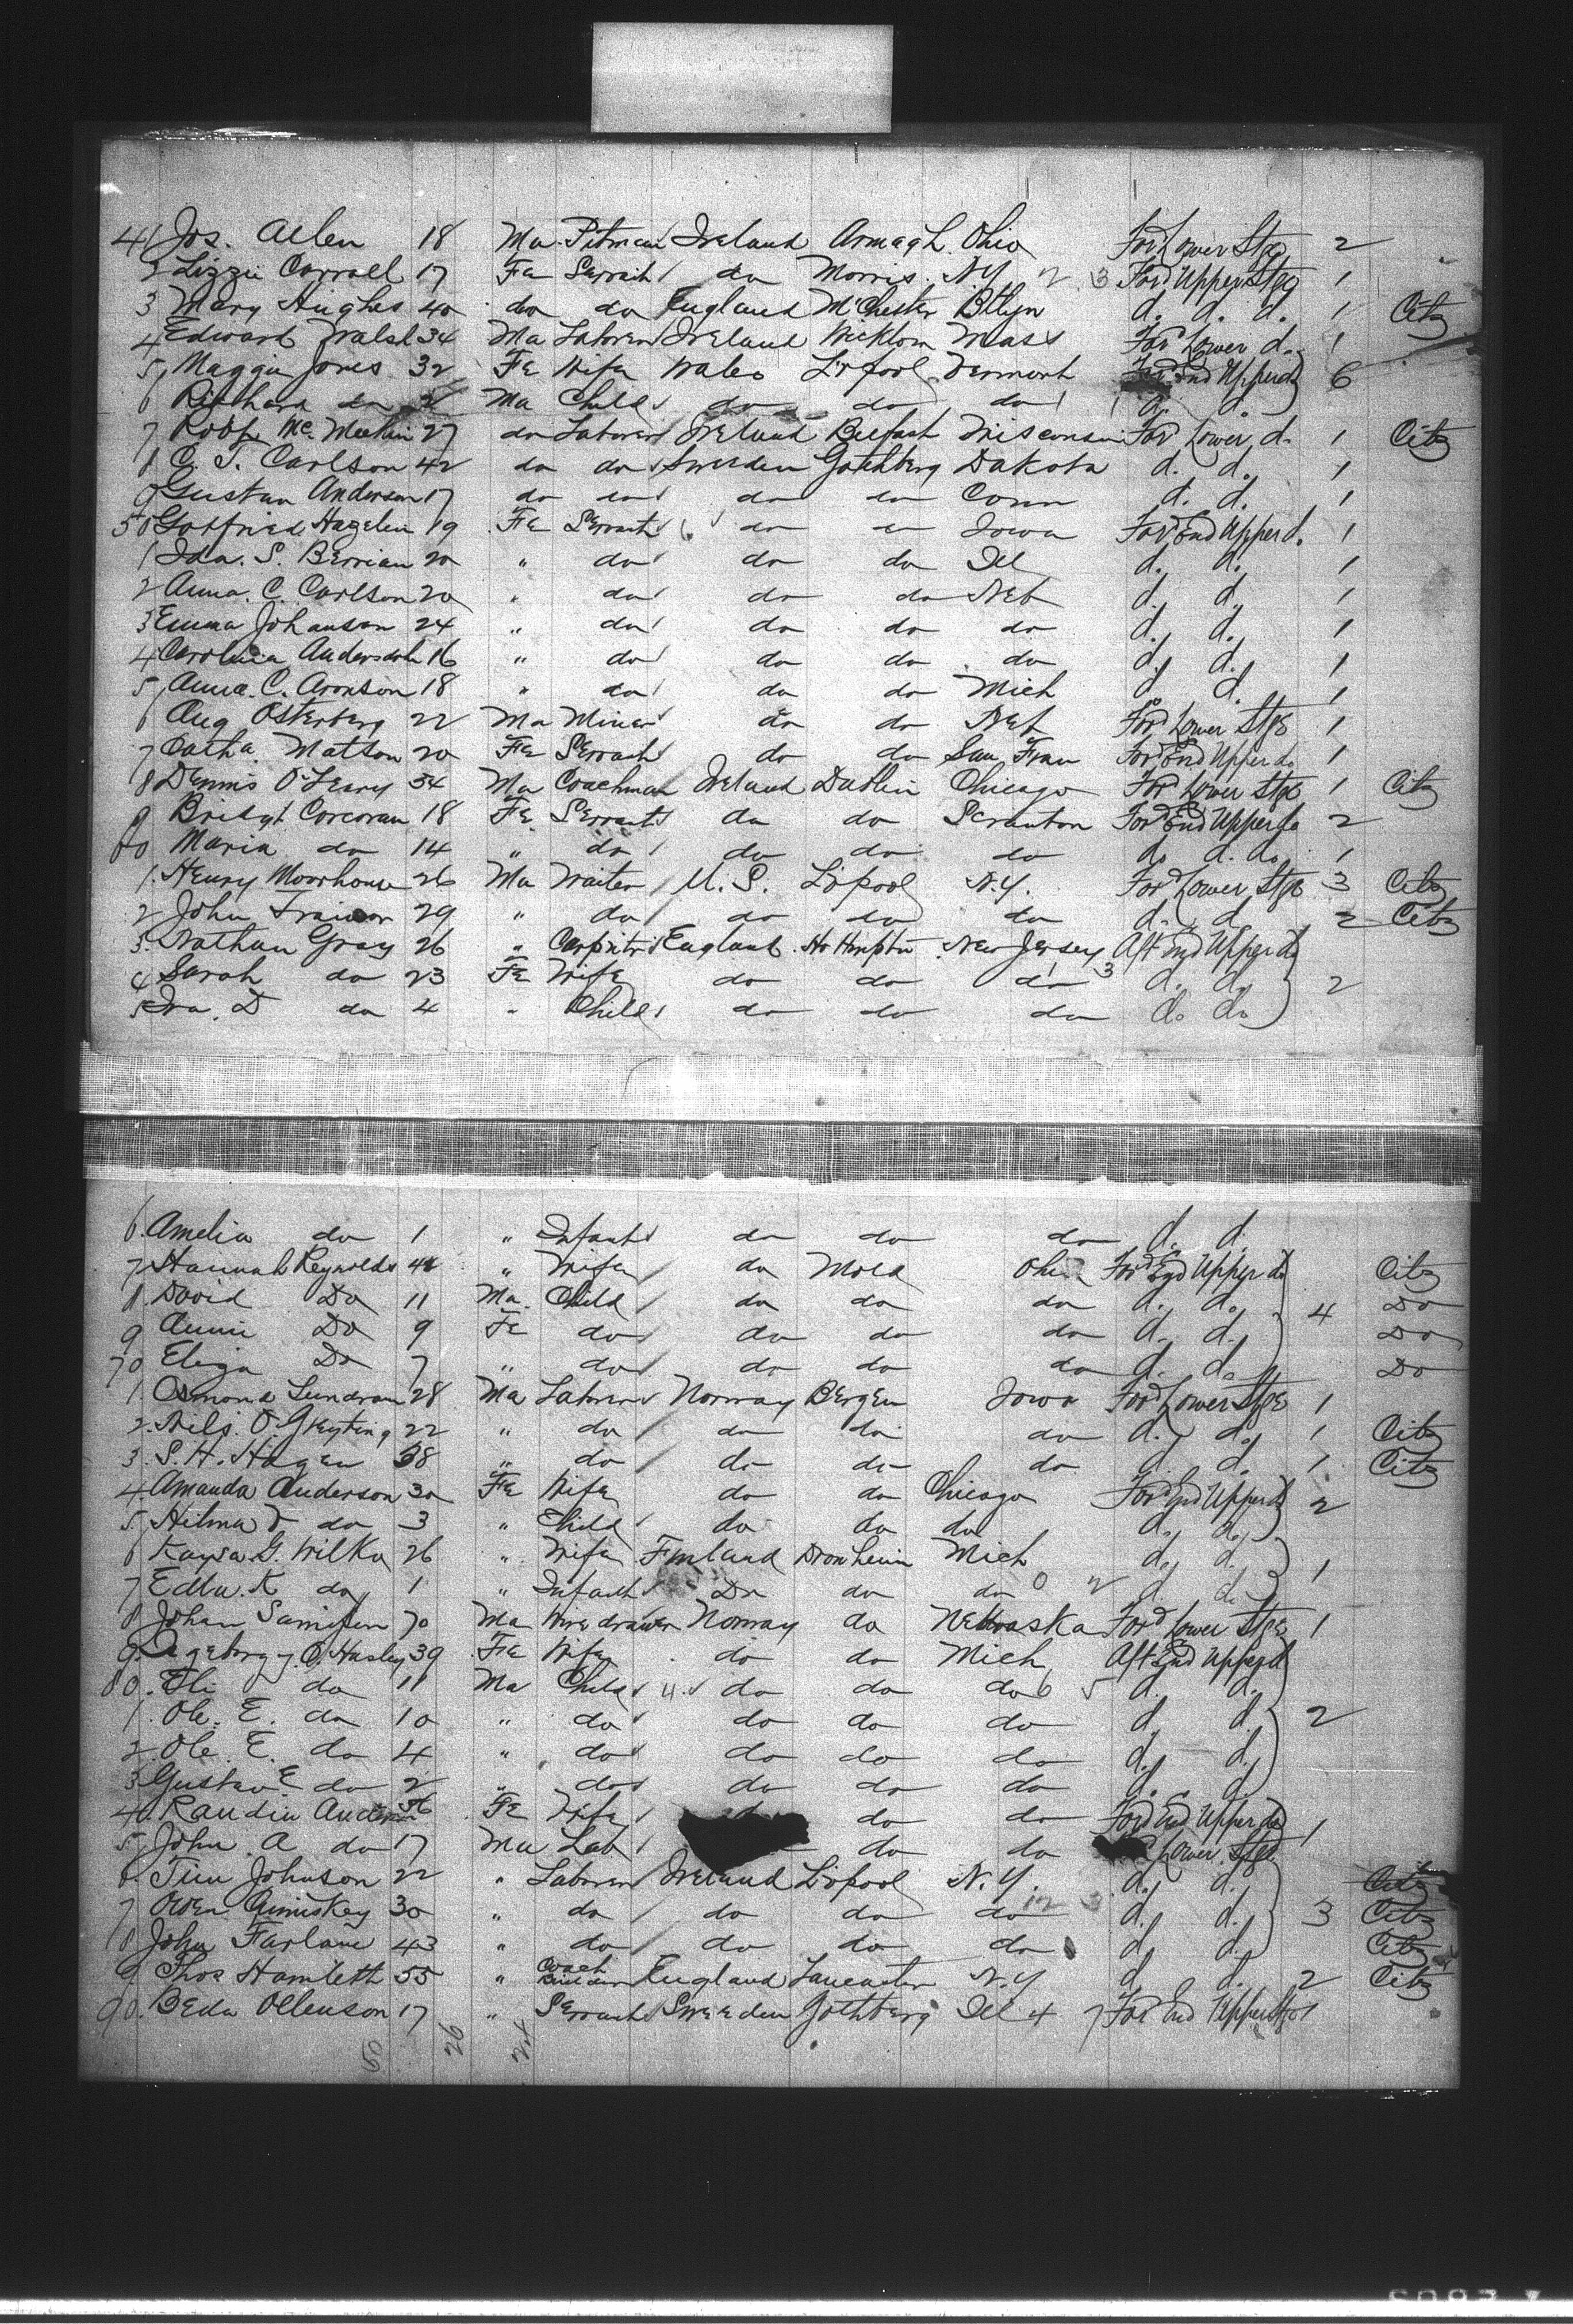 41 Jos. Allen 18 Ma Pitman Ireland Armagh Ohio For Lower Stge 2
2 Lizzie Carroll 17 Fe Servant do Morris N.Y. 2 3 Ford Upper Stge 1
3 Mary Hughes 40 do do England McChester Bklyn d. d. d. 1 Citz
4 Edward Walsh 34 Ma Laborer Ireland Wicklow Mass For Lower d. 1
5 Maggie Jones 32 Fe Wife Wales L'pool Vermont For End Upper do 6
6 Richard do Ma Child do do do d. d.
7 Robt. Mc. Meekin 27 do Laborer Ireland Belfast Wisconsin For Lower d. 1 Citz
8 C. J. Carlson 42 do do Sweeden Gothberg Dakota d. d. 1
9 Gustav Anderson 17 do do do do Conn d. d. 1
50 Gotfried Hagelin 19 Fe Servant do do Iowa For End Upper d. 1
1 Ida. S. Berrian 20 " do do do Ill d. d. 1
2 Anna. C. Carlson 20 " do do do Neb d. d. 1
3 Emma Johanson 24 " do do do do d. d. 1
4 Carolina Anderson 16 " do do do do d. d. 1
5 Anna. C. Aronson 18 " do do do Mich d d. 1
6 Aug Osterberg 22 Ma Miner do do Neb For Lower Stge 1
7 Catha. Matson 20 Fe Servant do do San Fran For End Upper do 1
8 Dennis O'Leary 34 Ma Coachman Ireland Dublin Chicago For Lower Stge 1 Citz
9 Bridgt Corcoran 18 Fe Servant do do Scranton For End Upper do 2
60 Maria do 14 " do do do do do d. do 1
1. Henry Moorhouse 26 Ma Waiter U.S. L'pool N.Y. For Lower Stge 3 Citz
2 John Trainor 29 " do do do do d. d. 2 Citz
3 Nathan Gray 26 " Carpntr England No Hmptn New Jersey Aft End Upper do
4 Sarah do 23 Fe Wife do do do 3 d. d. 2
5 Iva. D do 4 " Child do do do do do
6. Amelia do 1 " Infant do do do d. d.
7 Hannah Reynolds 44 " Wife do Mold Ohio For End Upper do Citz
8. David Do 11 Ma. Child do do do d. d. 4 Do
9 Annie Do 9 Fe do do do do d. d. Do
70 Eliza Do 7 " do do do do d. do Do
1. Osmond 28 Ma Laborer Norway Bergen Iowa For Lower Stge 1
2. Nils. O. 22 " do do do do d. d. 1 Citz
3. S. H. Hagen 38 " do do do do d. d. 1 Citz
4. Amanda Anderson 30 Fe Wife do do Chicago For End Upper do 2
5. Hilma do 3 " Child do do do d. d.
6 Kaysa G. Wilka 26 " Wife Finland Dronheim Mich d. d. 1
7 Edla. K do 1 " Infant Do do do 0 2 d do
8 Johan 70 Ma Wiredrawer Norway do Nebraska For Lower Stge 1
9. O. Husley 39 Fe Wife do do Mich Aft End Upper d
80. Eli do 11 Ma Child U.S do do do 6 5 d. d.
1. Ole. E. do 10 " do do do do d. d. 2
2. Ole. E. do 4 " do do do do d. d.
3 Gustav E do 2 " do do do do d. d
4. Randin Anderson 56 Fe Wife do do For End Upper do 1
5, John. A do 17 Ma Lab do do Lower Stge
6. Tim Johnson 22 " Laborer Ireland L'pool N.Y. d. d. Citz
7 Owen 30 " do do do do 12 3 d. d. 3 Citz
8 John Farlane 43 " do do do do d. d. Citz
9 Thos Hamlett 55 " Coach Builder England Lancaster N.Y d. d. 2 Citz
90. Beda Ollenson 17 " Servant Sweeden Gothberg Ill 4 7 For End Upper Stge 1
50 26 24